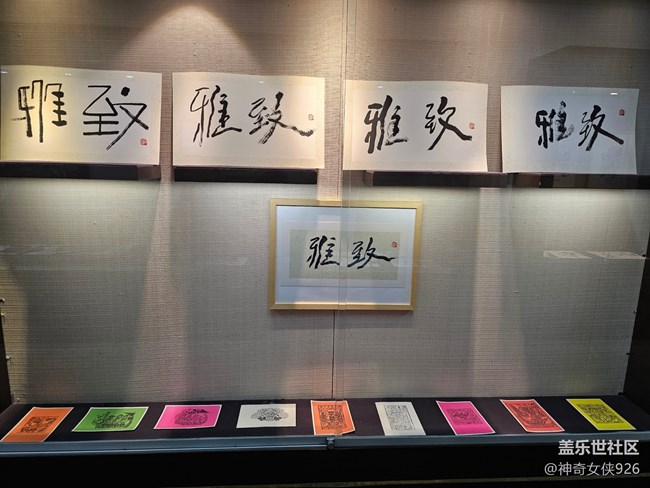 雅致
雅致
雅致
雅致
雅致
盖乐世社区
@神奇女侠926